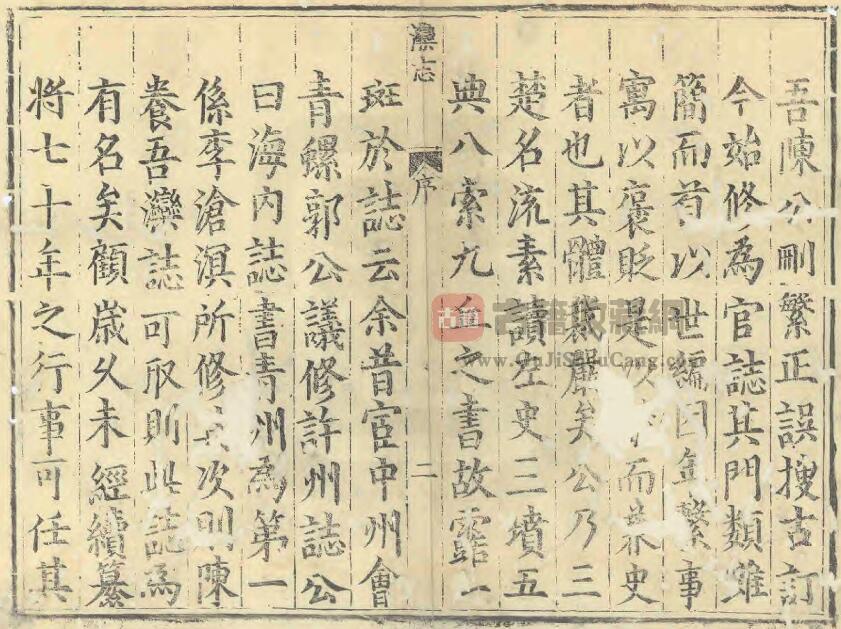 吾陳公刪繁正誤搜古訂
今始修為官誌其門類雖
簡而首以世編因年繫事
寓以褒貶是以而兼史
者也其體裁嚴矣公乃三
楚名流素讀左史三墳五
典八索九丘之書故露一
灤志 序 二
斑於誌云余昔宦中州會
青螺郭公議修許州誌公
曰海内誌書青州為第一
係李滄溟所修其次則陳
養吾灤誌可取則此誌為
有名矣顧歲久未經續纂
将七十年之行事可任其
古籍收藏網
www.GuJiShouCang.com